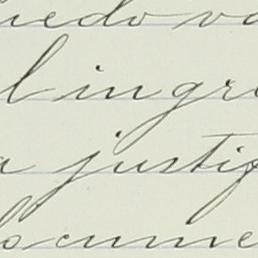 uedo va
l ingre
a justif
ocume